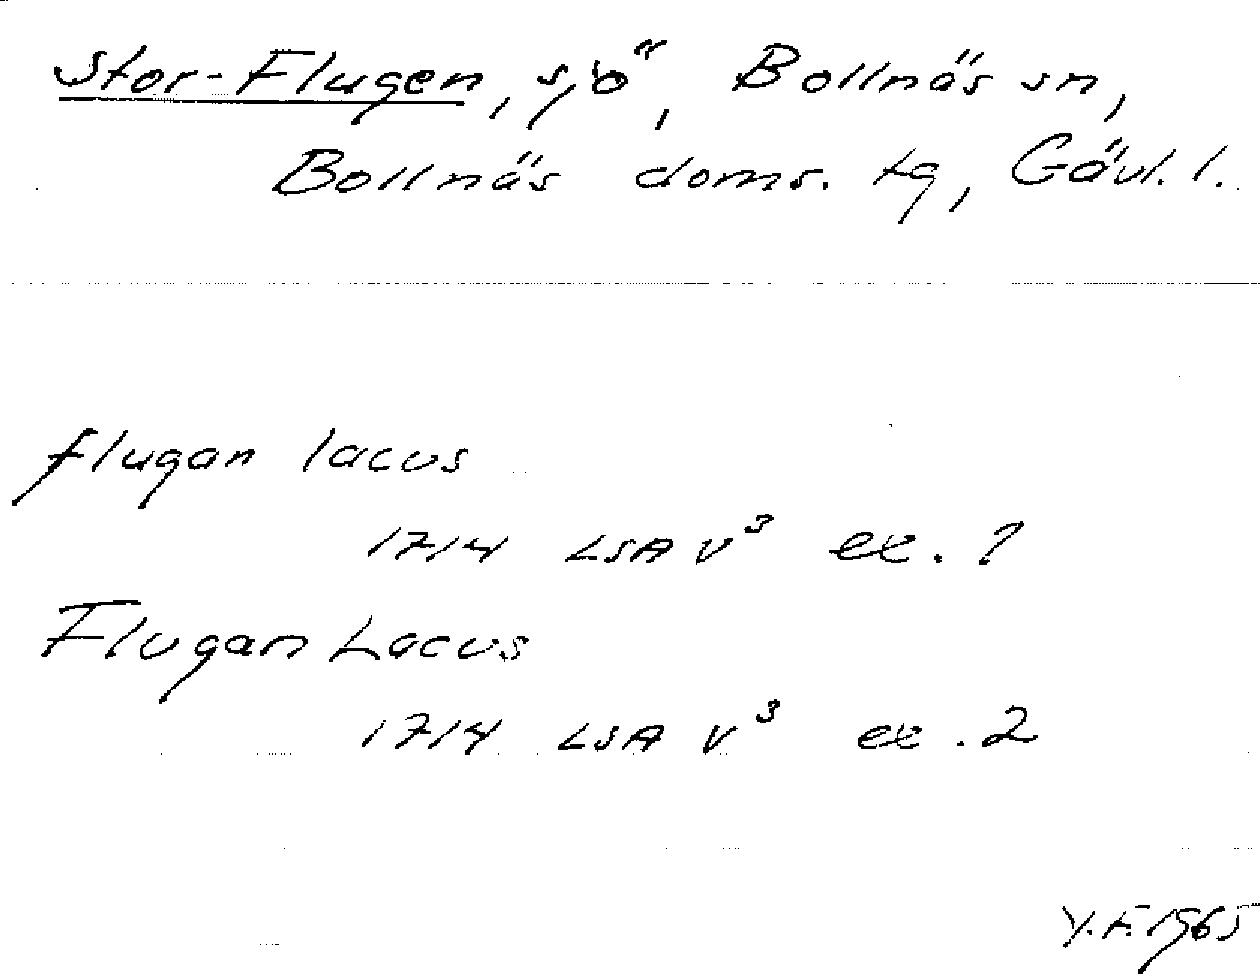 Stor-Flugen, sjö, Bollnäs sn,
Bollnäs doms. tg, Gävl. l.
flugan lacus
1714 LSA V³ ex. ?
Flugan Lacus
1714 LSA V³ ex. 2
Y.F. 1965